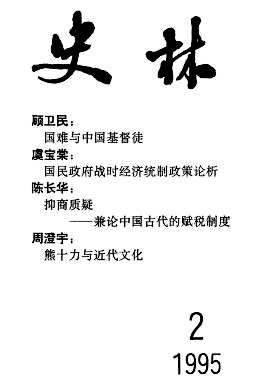 史林
顾卫民：
国难与中国基督徒
虞宝棠：
国民政府战时经济统制政策论析
陈长华：
抑商质疑
——兼论中国古代的赋税制度
周澄宇：
熊十力与近代文化
2
1995